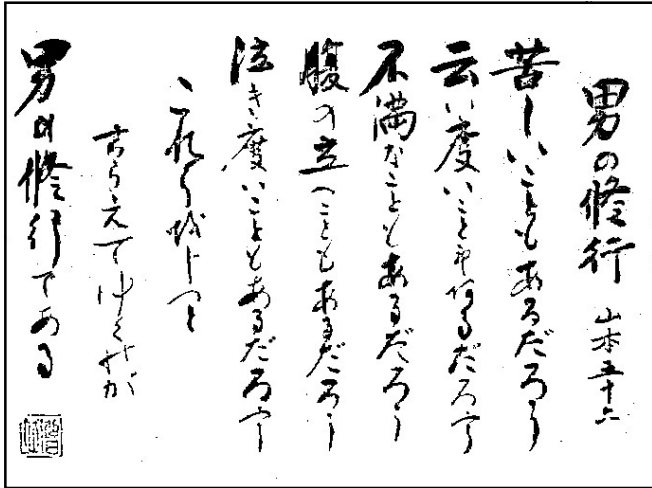 男の修行 山本五十六
苦しいこともあるだろう
云い度いこともあるだろう
不満なこともあるだろう
腹の立つこともあるだろう
泣き度いこともあるだろう
これらをじつと
こらえてゆくのが
男の修行である